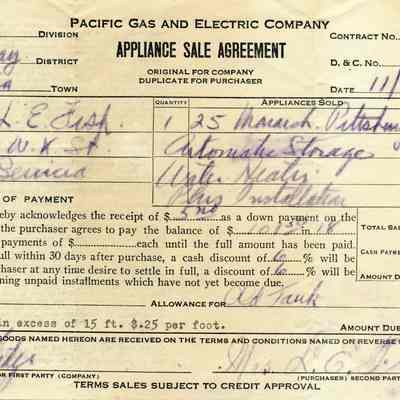 PACIFIC GAS AND ELECTRIC COMPANY
DIVISION
CONTRACT NO.
APPLIANCE SALE AGREEMENT
DISTRICT
ORIGINAL FOR COMPANY
DUPLICATE FOR PURCHASER
D. & C. No.
TOWN
DATE 11/
QUANTITY
APPLIANCES SOLD
L. E. 1 25 Monarch
W. K St. Automatic Storage
Benicia Water Heater
Plus Installation
OF PAYMENT
eby acknowledges the receipt of $ as a down payment on the
TOTAL SAL
the purchaser agrees to pay the balance of $
payments of $ each until the full amount has been paid.
CASH PAYME
ull within 30 days after purchase, a cash discount of 6 % will be
chaser at any time desire to settle in full, a discount of 6 % will be
AMOUNT D
aining unpaid installments which have not yet become due.
ALLOWANCE FOR Old Tank
in excess of 15 ft. $.25 per foot.
AMOUNT DUE
GOODS NAMED HEREON ARE RECEIVED ON THE TERMS AND CONDITIONS NAMED ON REVERSE
Mrs L. E.
FOR FIRST PARTY (COMPANY)
(PURCHASER) SECOND PART
TERMS SALES SUBJECT TO CREDIT APPROVAL